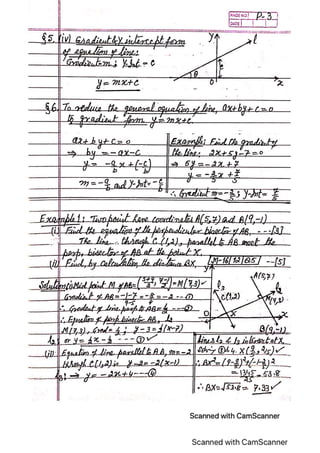 PAGE NO. P-3
DATE
§5. (iv) Gradient & Y-intercept form
of equation of line:
Gradient=m; Y-Int = c
y = mx+c
y
l
c
θ
O
x
§6. To reduce the general equation of line, ax+by+c=0
to gradient form y=mx+c.
ax+by+c=0
⇒ by = -ax-c
y = -a/b x + (-c/b)
m = -a/b and Y-Int = -c/b
Example: Find the gradient of
the line: 2x+5y-7=0
⇒ 5y = -2x+7
y = -2/5 x + 7/5
∴ Gradient = -2/5; Y-Int = 7/5
Example 1: Two point have coordinates A(5,7) and B(9,-1)
(i) Find the equation of the perpendicular bisector of AB. ---[3]
The line through C(1,2), parallel to AB meet the
perp. bisector of AB at the point X.
(ii) Find, by calculation, the distance BX. --[5]
Solution: (i) Mid point M of AB=(5+9/2, 7-1/2)=M(7,3)
Gradient of AB = -1-7/9-5 = -8/4 = -2 --①
∴ Gradient of line perp. to AB = 1/2 --②
∴ Equation of perp. bisector AB, l2
M(7,3), Grad = 1/2; y-3 = 1/2(x-7)
l2; or y = 1/2 x - 1/2 ---③
(ii) Equation of line parallel to AB, m=-2
through C(1,2) is y-2=-2(x-1)
l3; ⇒ y = -2x+4---④
A(5,7)
l3
C(1,2)
M(7,3)
l2
X
B(9,-1)
Lines l2 & l3 intersect at X,
∴ BX=√53.8 = 7.33
Scanned with CamScanner
Scanned with CamScanner